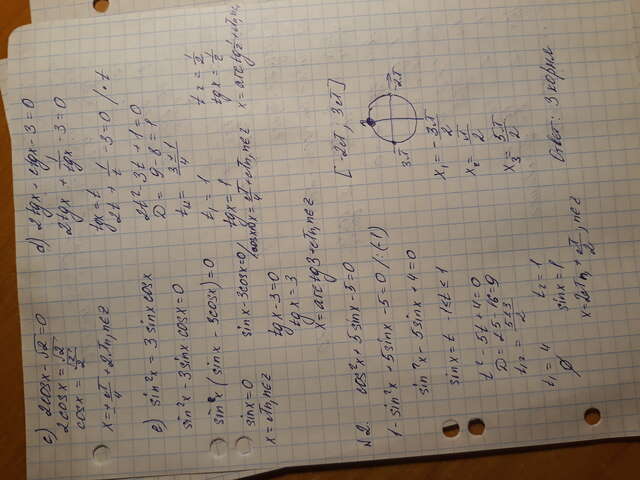 c) 2cosx - √2 = 0
2cosx = √2
cosx = √2/2
x = ± π/4 + 2πn, n∈z
d) 2tgx + ctgx - 3 = 0
2tgx + 1/tgx - 3 = 0
tgx = t
2t + 1/t - 3 = 0 / · t
2t² - 3t + 1 = 0
D = 9 - 8 = 1
t₁,₂ = (3 ± 1)/4
t₁ = 1
tgx = 1
x = π/4 + πn, n∈z
t₂ = 1/2
tgx = 1/2
x = arctg 1/2 + πn, n∈z
e) sin²x = 3sinx cosx
sin²x - 3sinx cosx = 0
sinx (sinx - 3cosx) = 0
sinx = 0
x = πn, n∈z
sinx - 3cosx = 0 /: cosx
tgx - 3 = 0
tgx = 3
x = arctg3 + πn, n∈z
№2. cos²x + 5sinx - 5 = 0
[-2π; 3π]
1 - sin²x + 5sinx - 5 = 0 / : (-1)
sin²x - 5sinx + 4 = 0
sinx = t -1 ≤ t ≤ 1
t² - 5t + 4 = 0
D = 25 - 16 = 9
t₁,₂ = (5 ± 3)/2
t₁ = 4
∅
t₂ = 1
sinx = 1
x = 2πn + π/2, n∈z
3π
-2π
x₁ = - 3π/2
x₂ = π/2
x₃ = 5π/2
Ответ: 3 корня